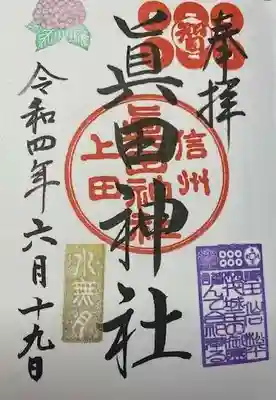 奉拝
眞田神社
信州
上田
眞田神社
令和四年六月十九日
水無月